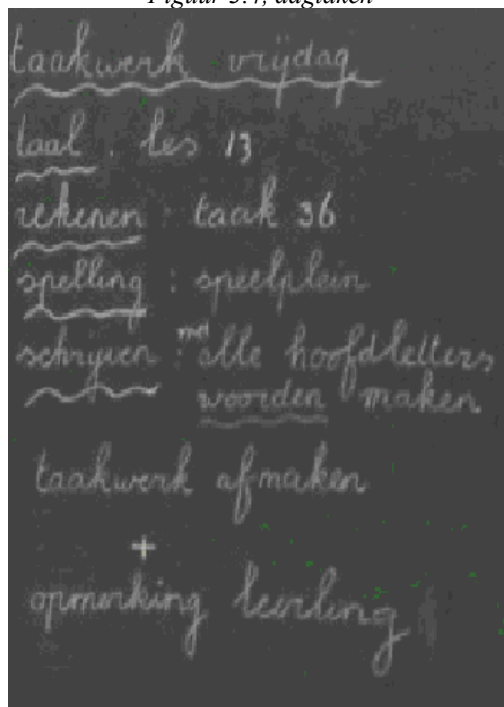 Figuur 3.4, dagtaken
taakwerk vrijdag
taal : les 13
rekenen : taak 36
spelling : speelplein
schrijven : met alle hoofdletters
woorden maken
taakwerk afmaken
+
opmerking leerling